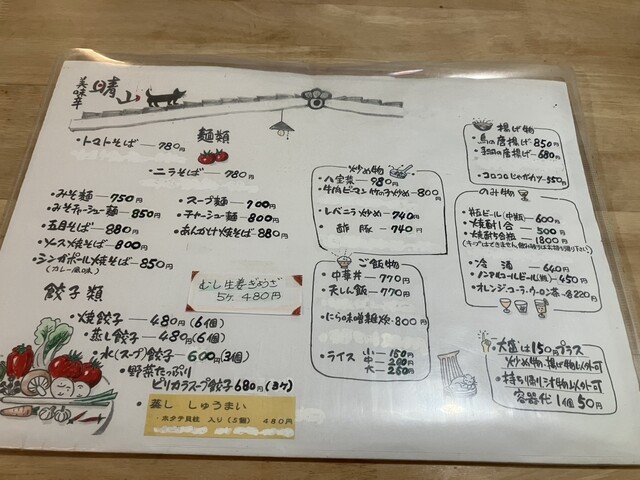 美味辛
晴山
麺類
・トマトそば―780円
・ニラそば―780円
・みそ麺―750円
・みそチャーシュー麺―850円
・五目そば―880円
・ソース焼そば―800円
・シンガポール焼そば―850円
(カレー風味)
・スープ麺―700円
・チャーシュー麺―800円
・あんかけ焼そば―880円
餃子類
・焼餃子―480円(6個)
・蒸し餃子―480円(6個)
・水(スープ)餃子―600円(8個)
・野菜たっぷり
ピリカラスープ餃子680円(8ケ)
むし生姜ぎょうざ
5ヶ 480円
・蒸し しゅうまい
・ホタテ貝柱 入り(5個) 480円
炒め物
・八宝菜―980円
・牛肉ピーマン竹の子炒め―800円
・レバニラ炒め―740円
・酢豚―740円
ご飯物
・中華丼―770円
・天しん飯―770円
・にらの味噌雑炊―800円
・ライス
小―150円
中―200円
大―250円
揚げ物
・鳥の唐揚げ―850円
の唐揚げ―680円
・コロコロじゃがカツ―350円
のみ物
・生ビール(中瓶)―600円
・焼酎1合―500円
・焼酎4合瓶―1800円
・冷酒―640円
・ノンアルコールビール(瓶)―450円
・オレンジ・コーラ・ウーロン茶―各220円
・大盛は150円プラス
炒め物、揚げ物以外可
・持ち帰り汁物以外可
容器代1個50円